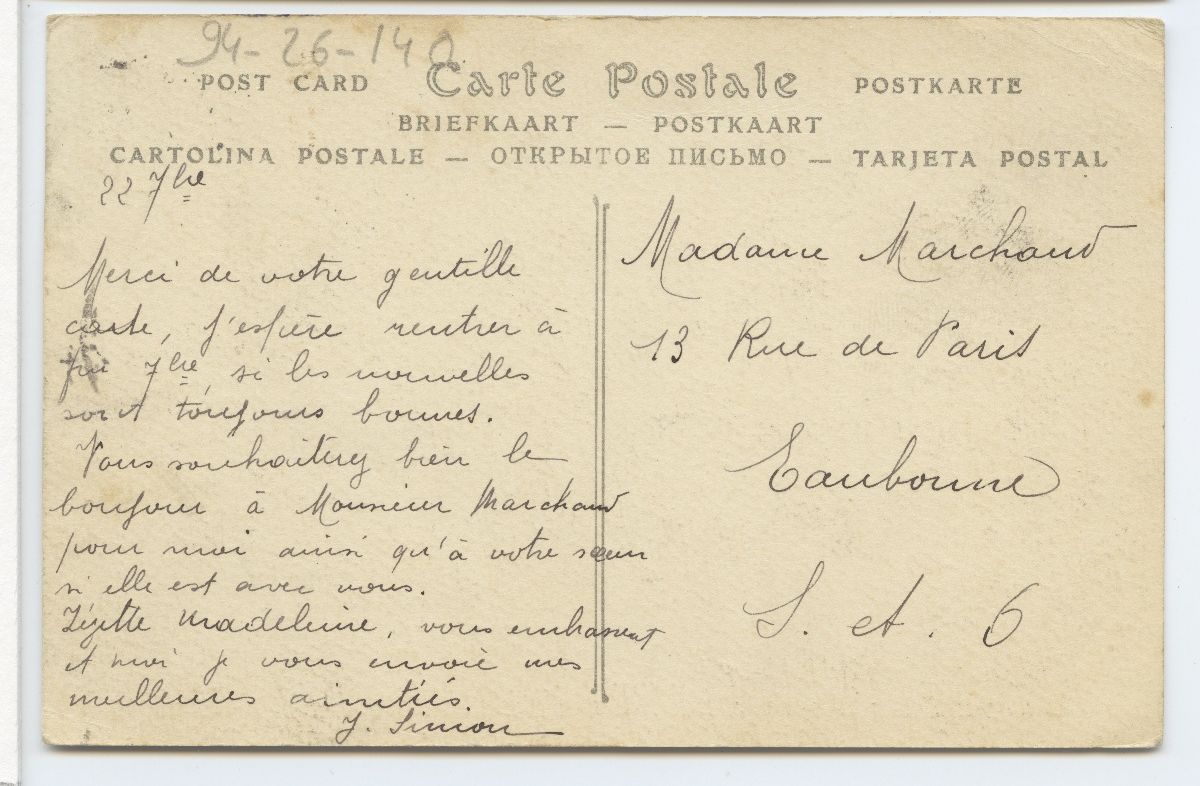 94-26-140
POST CARD Carte Postale POSTKARTE
BRIEFKAART — POSTKAART
CARTOLINA POSTALE — ОТКРЫТОЕ ПИСЬМО — TARJETA POSTAL
22 7bre
Merci de votre gentille
carte, j'espère rentrer à
fin 7bre, si les nouvelles
sont toujours bonnes.
Vous souhaiterez bien le
bonjour à Monsieur Marchand
pour moi ainsi qu'à votre sœur
si elle est avec vous.
Zézette Madeleine, vous embrassent
et moi je vous envoie mes
meilleures amitiés.
J. Simon
Madame Marchand
13 Rue de Paris
Eaubonne
S. et. O